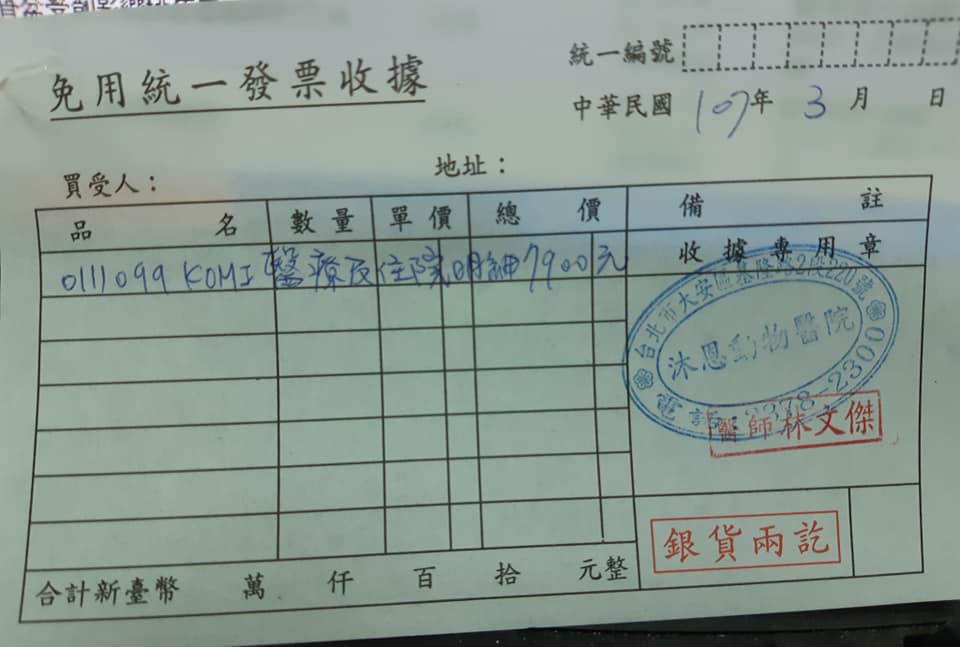 統一編號
免用統一發票收據
中華民國 107年 3 月 日
買受人： 地址：
品名 數量 單價 總價 備註
收據專用章
0111099 KOMI 醫療及住院明細 7900元
台北市大安區基隆路2段220號
沐恩動物醫院
電話：2378-2300
醫師林文傑
銀貨兩訖
合計新臺幣 萬 仟 百 拾 元整